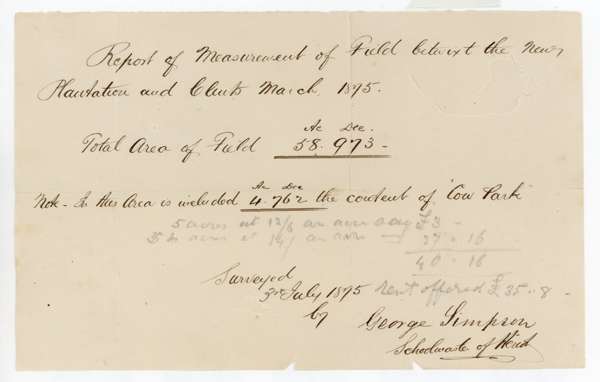 Report of Measurement of Field betwixt the New
Plantation and Clents March 1895.
Ac Dec.
Total Area of Field 58.973 -
Ac Dec
Note - In this Area is included 4.762 the content of 'Cow Park'
5 acres at 12/6 an acre say £3 -
at 14/ an acre 37 . 16
40 . 16
Surveyed
3rd July 1895 rent offered £35 . 8 -
by George Simpson
Schoolmaster of